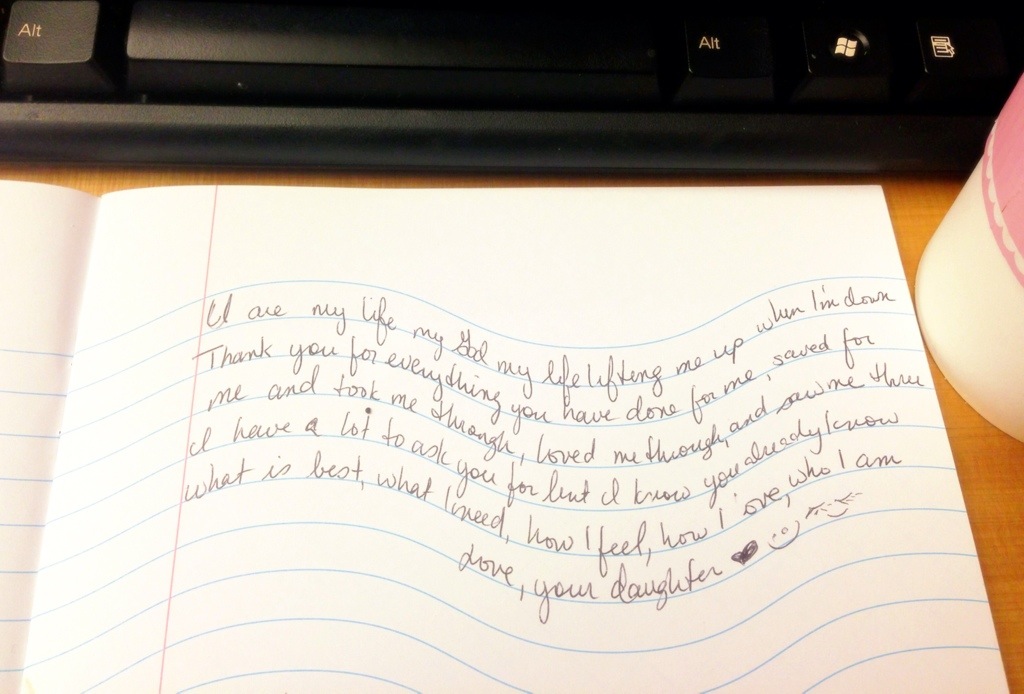 Alt
Alt
U are my life my God my life lifting me up when I'm down
Thank you for everything you have done for me, saved for
me and took me through, loved me through, and saw me thru
I have a lot to ask you for but I know you already know
what is best, what I need, how I feel, how I love, who I am
Love, your daughter